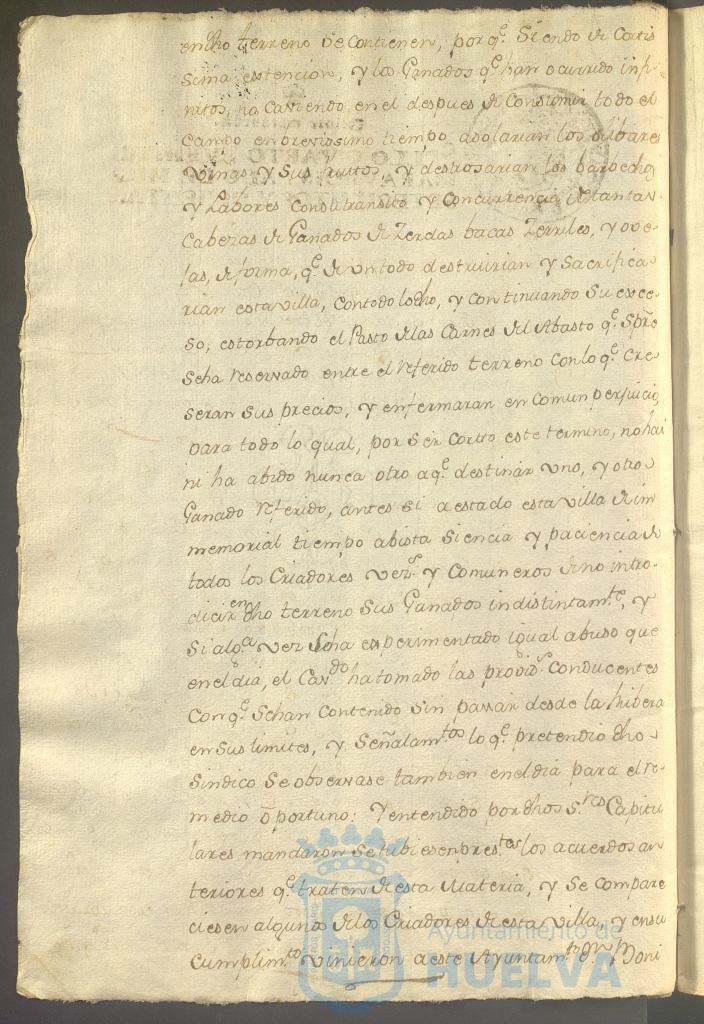 en dho terreno se Contienen, por q.e Siendo de Cortis
sima estencion, y los Ganados q.e han ocurrido infi-
nitos, no Caviendo en el despues de Consumir todo el
Campo en brevissimo tiempo asolarian los olibares
vinas y sus frutos, y destrosarian los barbechos
y Labores Con su transito y Concurrencia de tantas
Cabezas de Ganados de Zerdas bacas Zerriles, y ove-
jas, de forma, q.e de un todo destruirian y Sacrifica-
rian esta villa, Con todo lo dho, y continuando su exce-
so, estorbando el Pasto de las Carnes del Abasto q.e Spre
se ha reservado entre el referido terreno Con lo q.e Cre-
seran sus precios, y enfermaran en Comun perjuicio
para todo lo qual, por ser Corto este termino, no hai
ni ha abido nunca otro a q.e destinar uno, y otro
Ganado referido, antes si a estado esta villa de in
memorial tiempo a bista siencia y paciencia de
todos los Criadores vez.s y Comuneros de no intro-
dicir en dho terreno sus Ganados indistintam.te, y
Si alg.a vez se ha experimentado igual abuso que
en el dia, el Cav.do ha tomado las provid.s Conducentes
Con q.e se han Contenido sin passar desde la Ribera
en sus limites, y Señalam.tos lo q.e pretendio dho
Sindico se observase tambien en el dia para el re-
medio oportuno: Y entendido por dhos S.res Capitu
lares mandaron se tubiesen pres.tes los acuerdos an
teriores q.e traten de esta Materia, y se compare
ciesen algunos de los Criadores de esta villa, y en su
Cumplim.to vinieron a este Ayuntam.to Doni
Ayuntamiento de
HUELVA